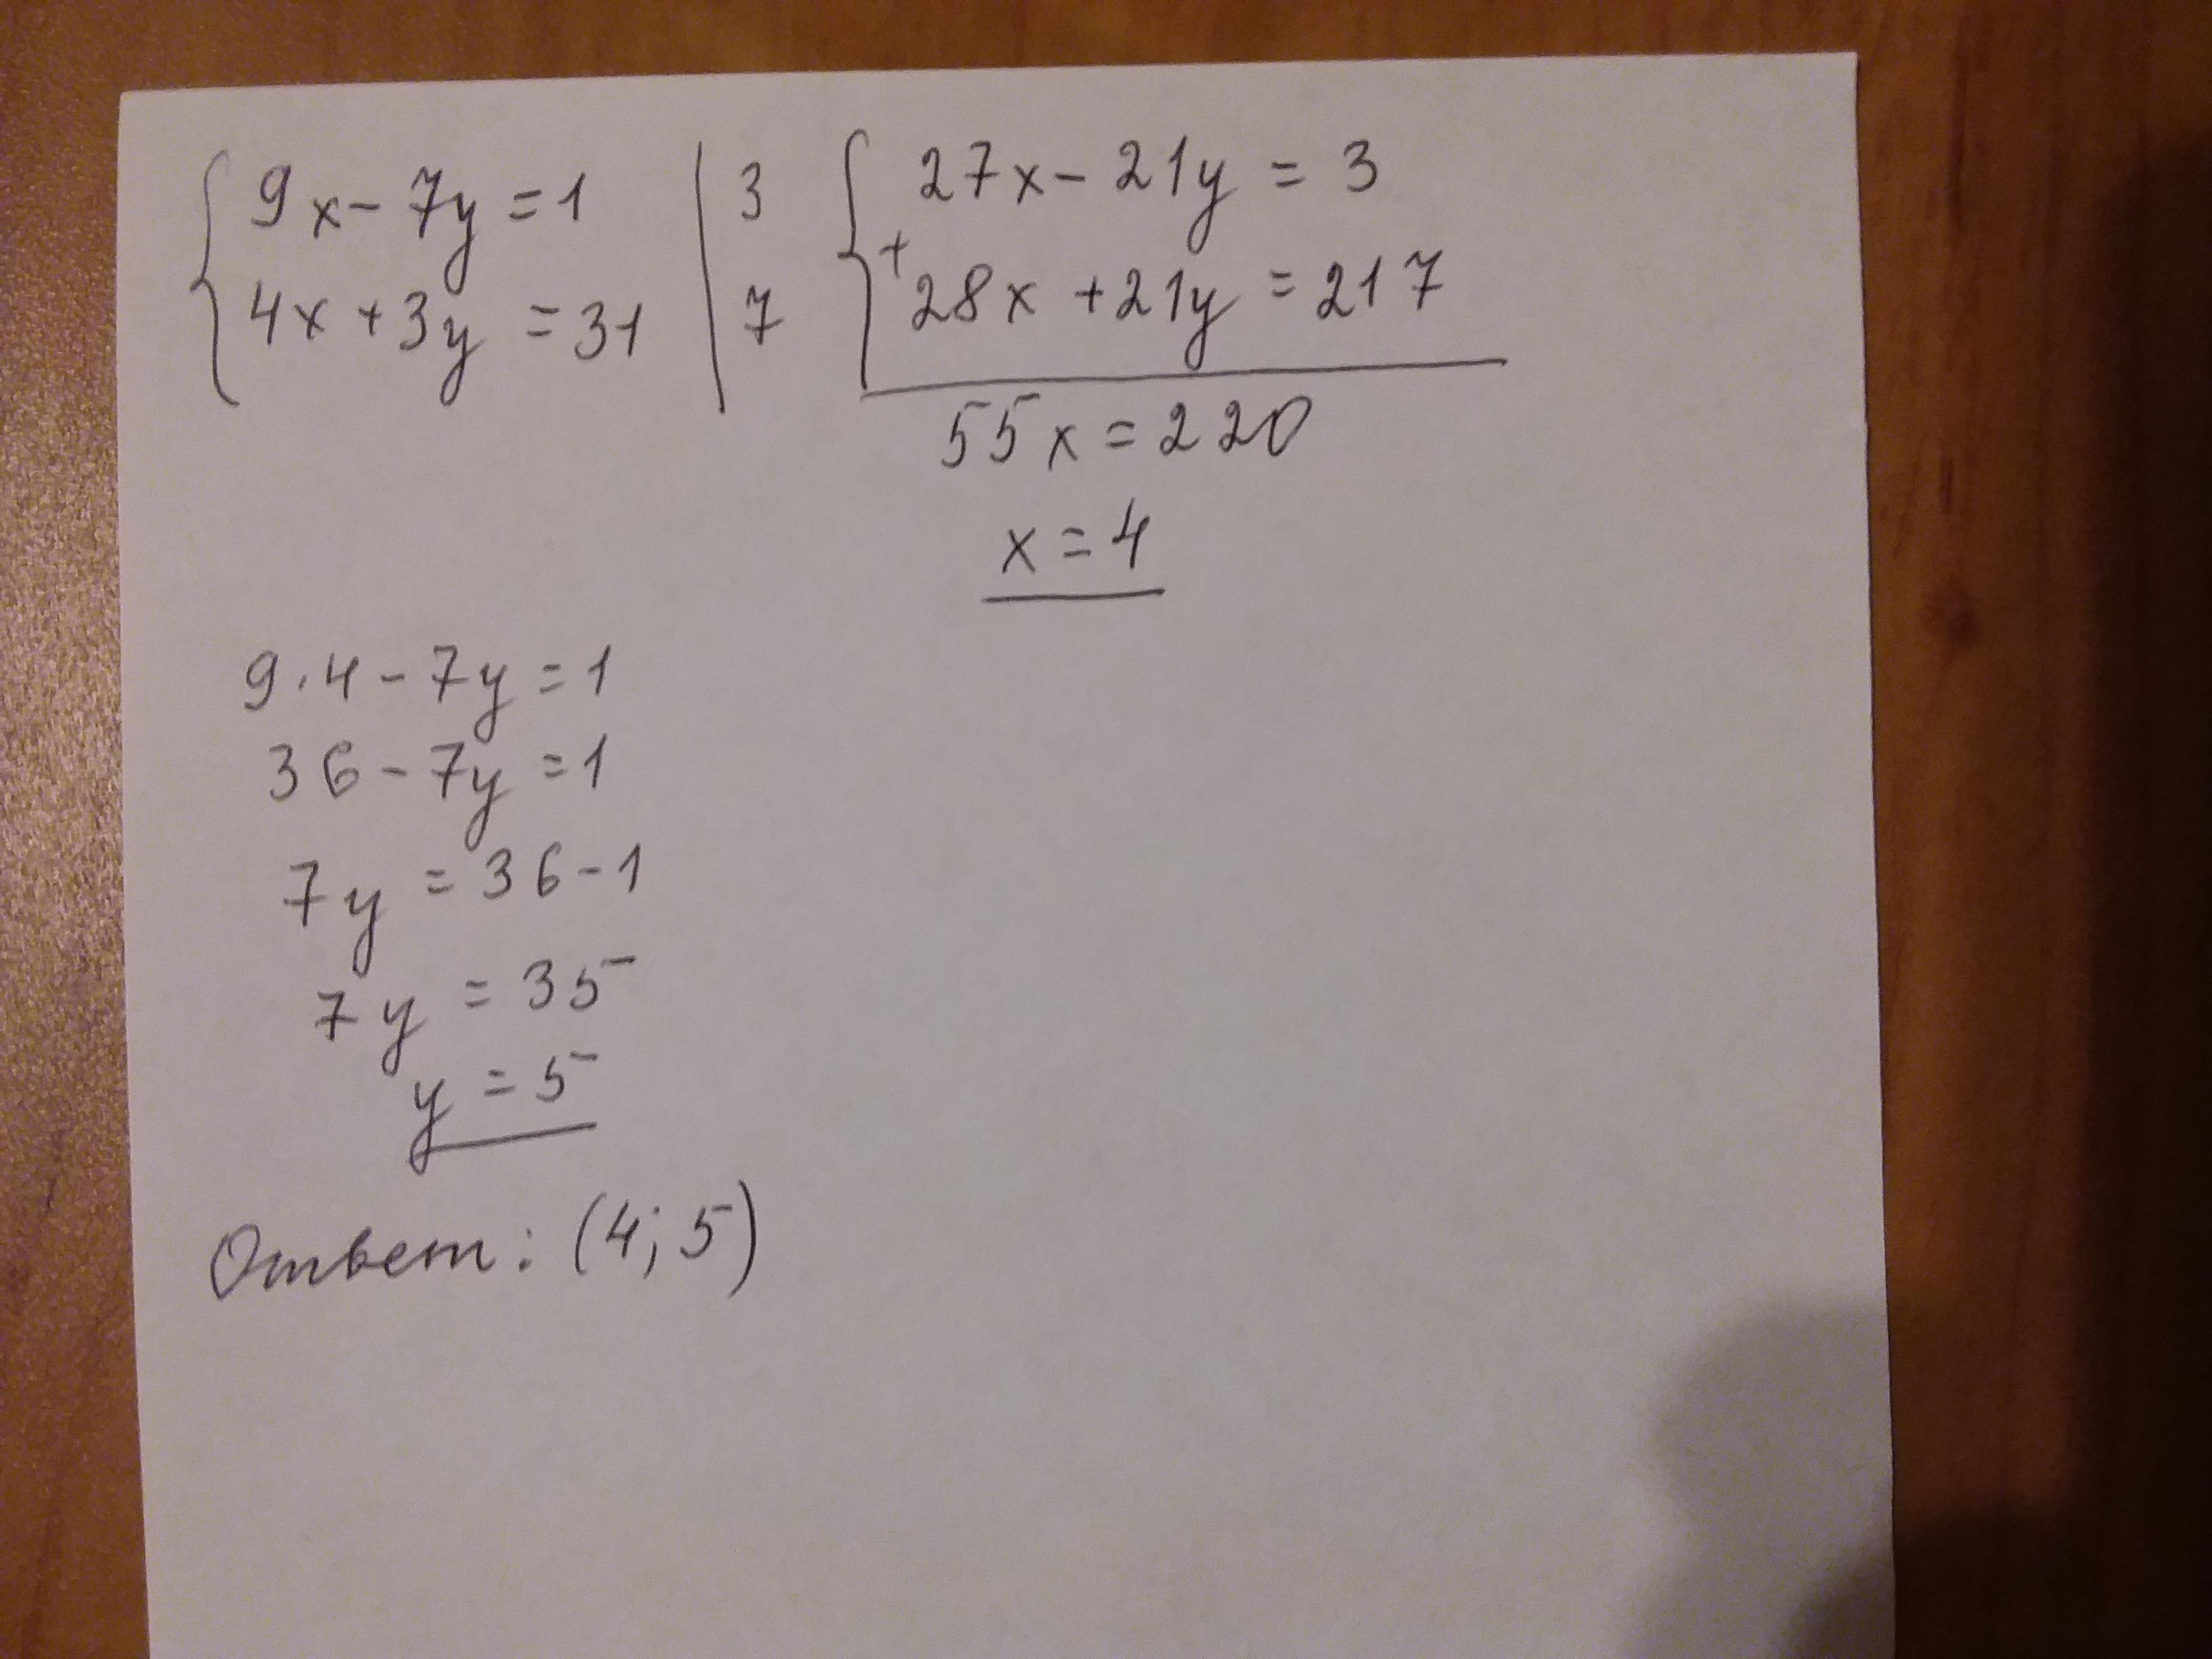 { 9x - 7y = 1 | 3 { 27x - 21y = 3
4x + 3y = 31 | 7 + 28x + 21y = 217
55x = 220
x = 4
9·4 - 7y = 1
36 - 7y = 1
7y = 36 - 1
7y = 35
y = 5
Ответ: (4; 5)